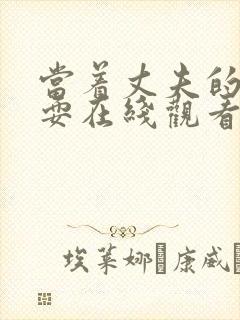 當着丈夫的
耍在綫觀看
埃萊娜·康威